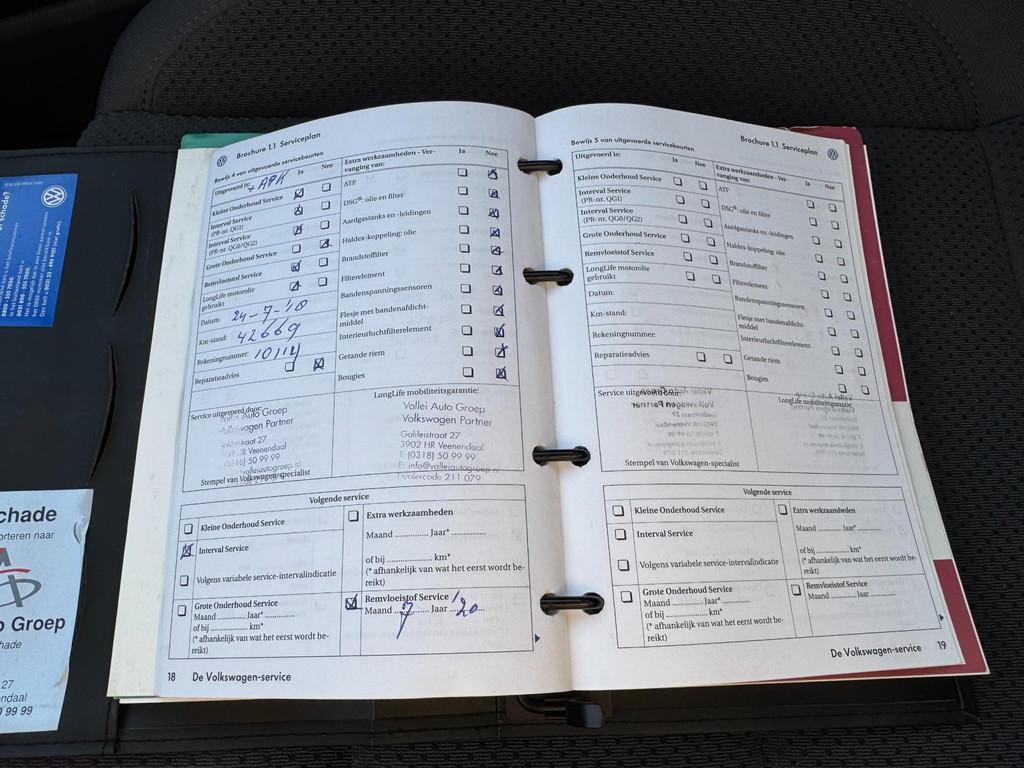 schade?
0031 33 - 494 9101
chade
orteren naar
o Groep
hade
27
endaal
9 99 99
Brochure 1.1 Serviceplan
Bewijs 4 van uitgevoerde servicebeurten
Uitgevoerd is: + APK Ja Nee
Kleine Onderhoud Service
Interval Service
(PR-nr. QG1)
Interval Service
(PR-nr. QG0/QG2)
Grote Onderhoud Service
Remvloeistof Service
LongLife motorolie
gebruikt
Datum: 24-7-18
Km-stand: 42669
Rekeningnummer:
Reparatieadvies
Extra werkzaamheden - Ver-
vanging van: Ja Nee
ATF
DSG®: olie en filter
Aardgastanks en -leidingen
Haldex-koppeling: olie
Brandstoffilter
Filterelement
Bandenspanningssensoren
Flesje met bandenafdicht-
middel
Interieurluchtfilterelement
Getande riem
Bougies
Service uitgevoerd door:
Auto Groep
wagen Partner
straat 27
HR Veenendaal
(0318) 50 99 99
valleiautogroep.nl
Stempel van Volkswagen-specialist
LongLife mobiliteitsgarantie:
Vallei Auto Groep
Volkswagen Partner
Galileistraat 27
3902 HR Veenendaal
T: (0318) 50 99 99
E: info@valleiautogroep.nl
Dealercode 211 079
Volgende service
Kleine Onderhoud Service
Interval Service
Volgens variabele service-intervalindicatie
Grote Onderhoud Service
Maand ............ Jaar* ............
of bij ............ km*
(* afhankelijk van wat het eerst wordt be-
reikt)
Extra werkzaamheden
Maand ............ Jaar* ............
of bij ............ km*
(* afhankelijk van wat het eerst wordt be-
reikt)
Remvloeistof Service
Maand 7 Jaar 20
18 De Volkswagen-service
Brochure 1.1 Serviceplan
Bewijs 5 van uitgevoerde servicebeurten
Uitgevoerd is: Ja Nee
Kleine Onderhoud Service
Interval Service
(PR-nr. QG1)
Interval Service
(PR-nr. QG0/QG2)
Grote Onderhoud Service
Remvloeistof Service
LongLife motorolie
gebruikt
Datum:
Km-stand:
Rekeningnummer:
Reparatieadvies
Extra werkzaamheden - Ver-
vanging van: Ja Nee
ATF
DSG®: olie en filter
Aardgastanks en -leidingen
Haldex-koppeling: olie
Brandstoffilter
Filterelement
Bandenspanningssensoren
Flesje met bandenafdicht-
middel
Interieurluchtfilterelement
Getande riem
Bougies
Service uitgevoerd door:
Stempel van Volkswagen-specialist
LongLife mobiliteitsgarantie:
Volgende service
Kleine Onderhoud Service
Interval Service
Volgens variabele service-intervalindicatie
Grote Onderhoud Service
Maand ............ Jaar* ............
of bij ............ km*
(* afhankelijk van wat het eerst wordt be-
reikt)
Extra werkzaamheden
Maand ............ Jaar* ............
of bij ............ km*
(* afhankelijk van wat het eerst wordt be-
reikt)
Remvloeistof Service
Maand ............ Jaar ............
De Volkswagen-service 19